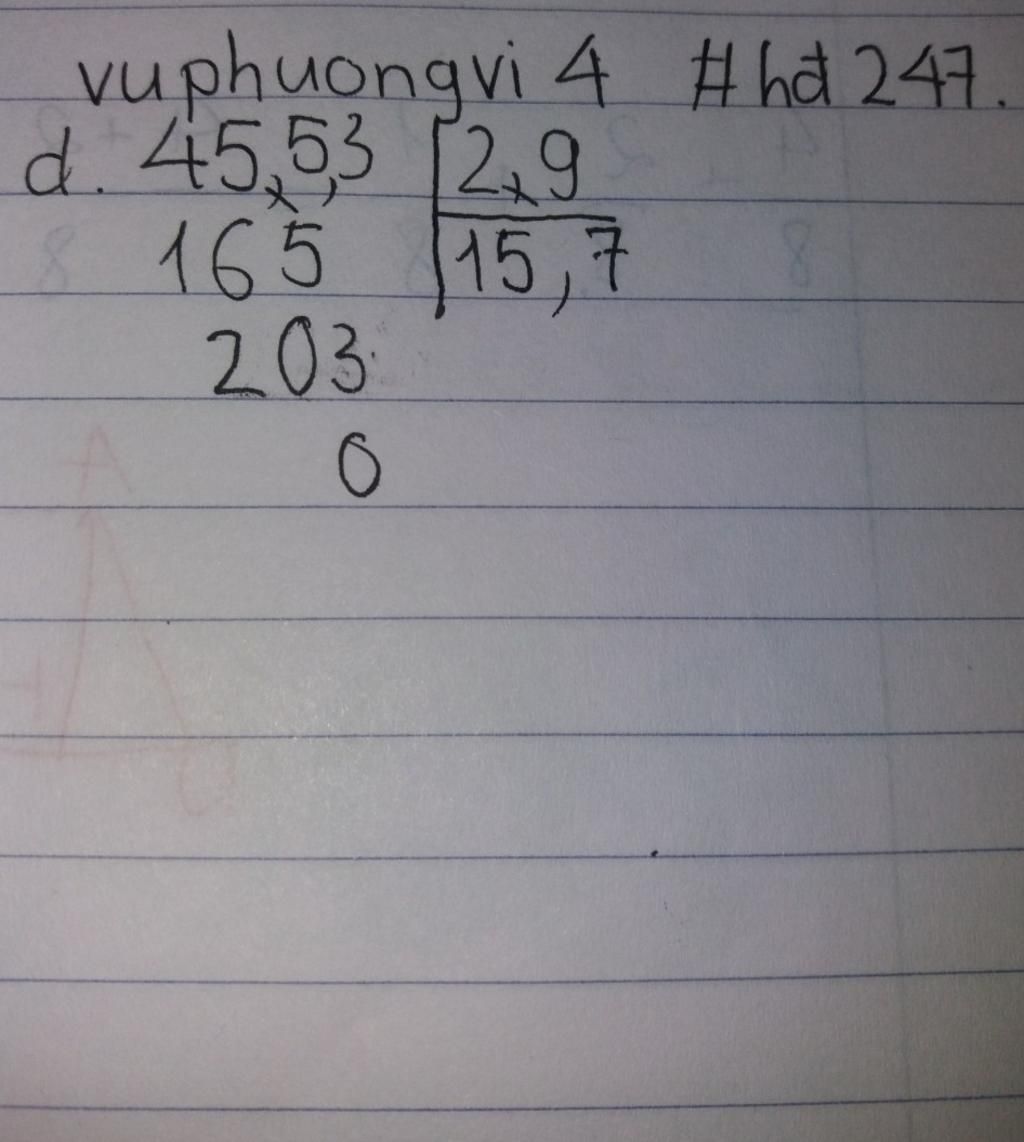 vuphuongvi 4 #hđ 247.
d. 45,5,3 2,9
165 15,7
203
0